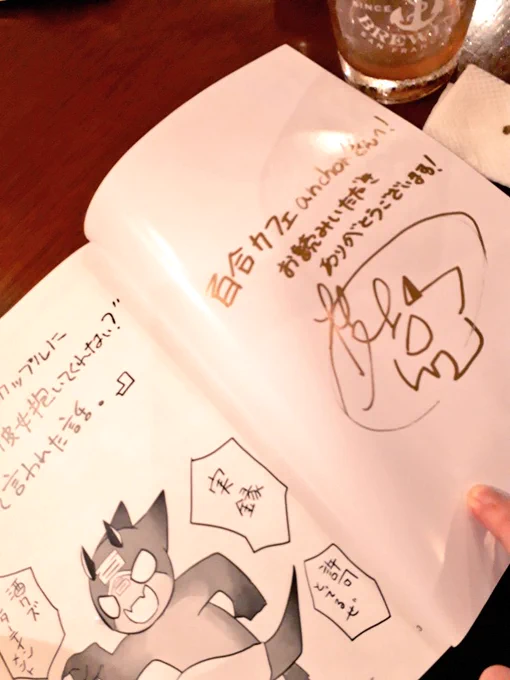 SINCE
BREWING
SAN FRAN
百合カフェanchorさんへ!
お読みいただき
ありがとうございます!
カップルに
彼女抱いてくれない?"
と言われた話。
実録
許可とてるぜ
酒クズ